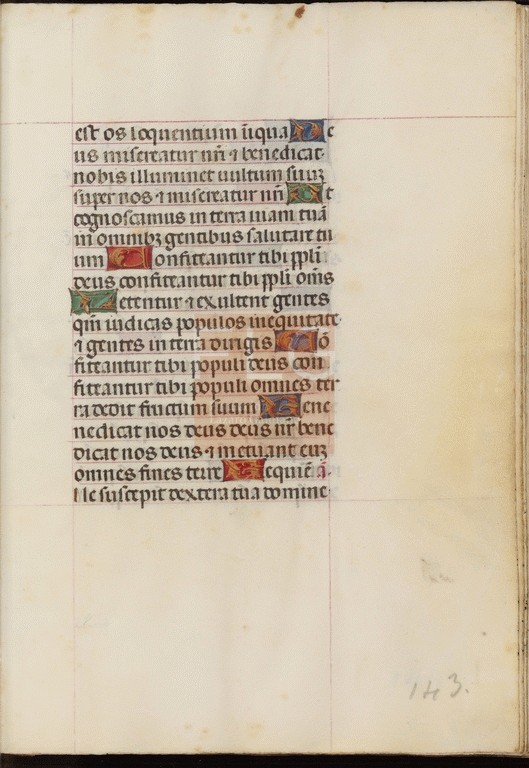 est os loquentium iniqua D e
us misereatur nr̄i ⁊ benedicat
nobis illuminet uultum suuꝫ
super nos ⁊ misereatur nr̄i U t
cognoscamus in terra uiam tuā
in omnibꝫ gentibus salutare tu
um C onfiteantur tibi pp̄li
deus confiteantur tibi pp̄li om̄s
L etentur ⁊ exultent gentes
qm̄ iudicas populos in equitate
⁊ gentes in terra dirigis C ō
fiteantur tibi populi deus con
fiteantur tibi populi omnes ter
ra dedit fructum suum B ene
nedicat nos deus deus nr̄ bene
dicat nos deus ⁊ metuant euꝫ
omnes fines terre R equiē ā.
Me suscepit dextera tua domine
143.